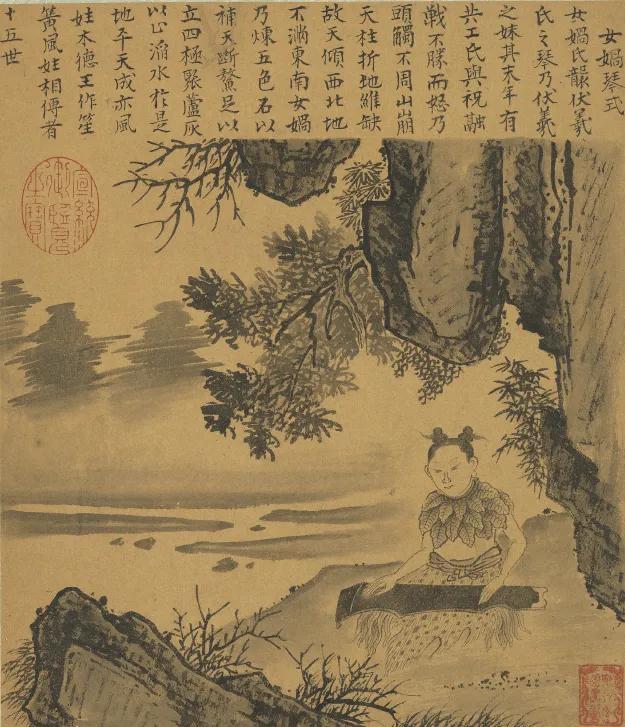 女媧琴式
女媧氏襲伏羲
氏之琴乃伏羲
之妹其末年有
共工氏與祝融
戰不勝而怒乃
頭觸不周山崩
天柱折地維缺
故天傾西北地
不滿東南女媧
乃煉五色石以
補天斷鰲足以
立四極聚蘆灰
以止滔水於是
地平天成亦風
姓木德王作笙
簧風姓相傳者
十五世
宣統御覽之寶